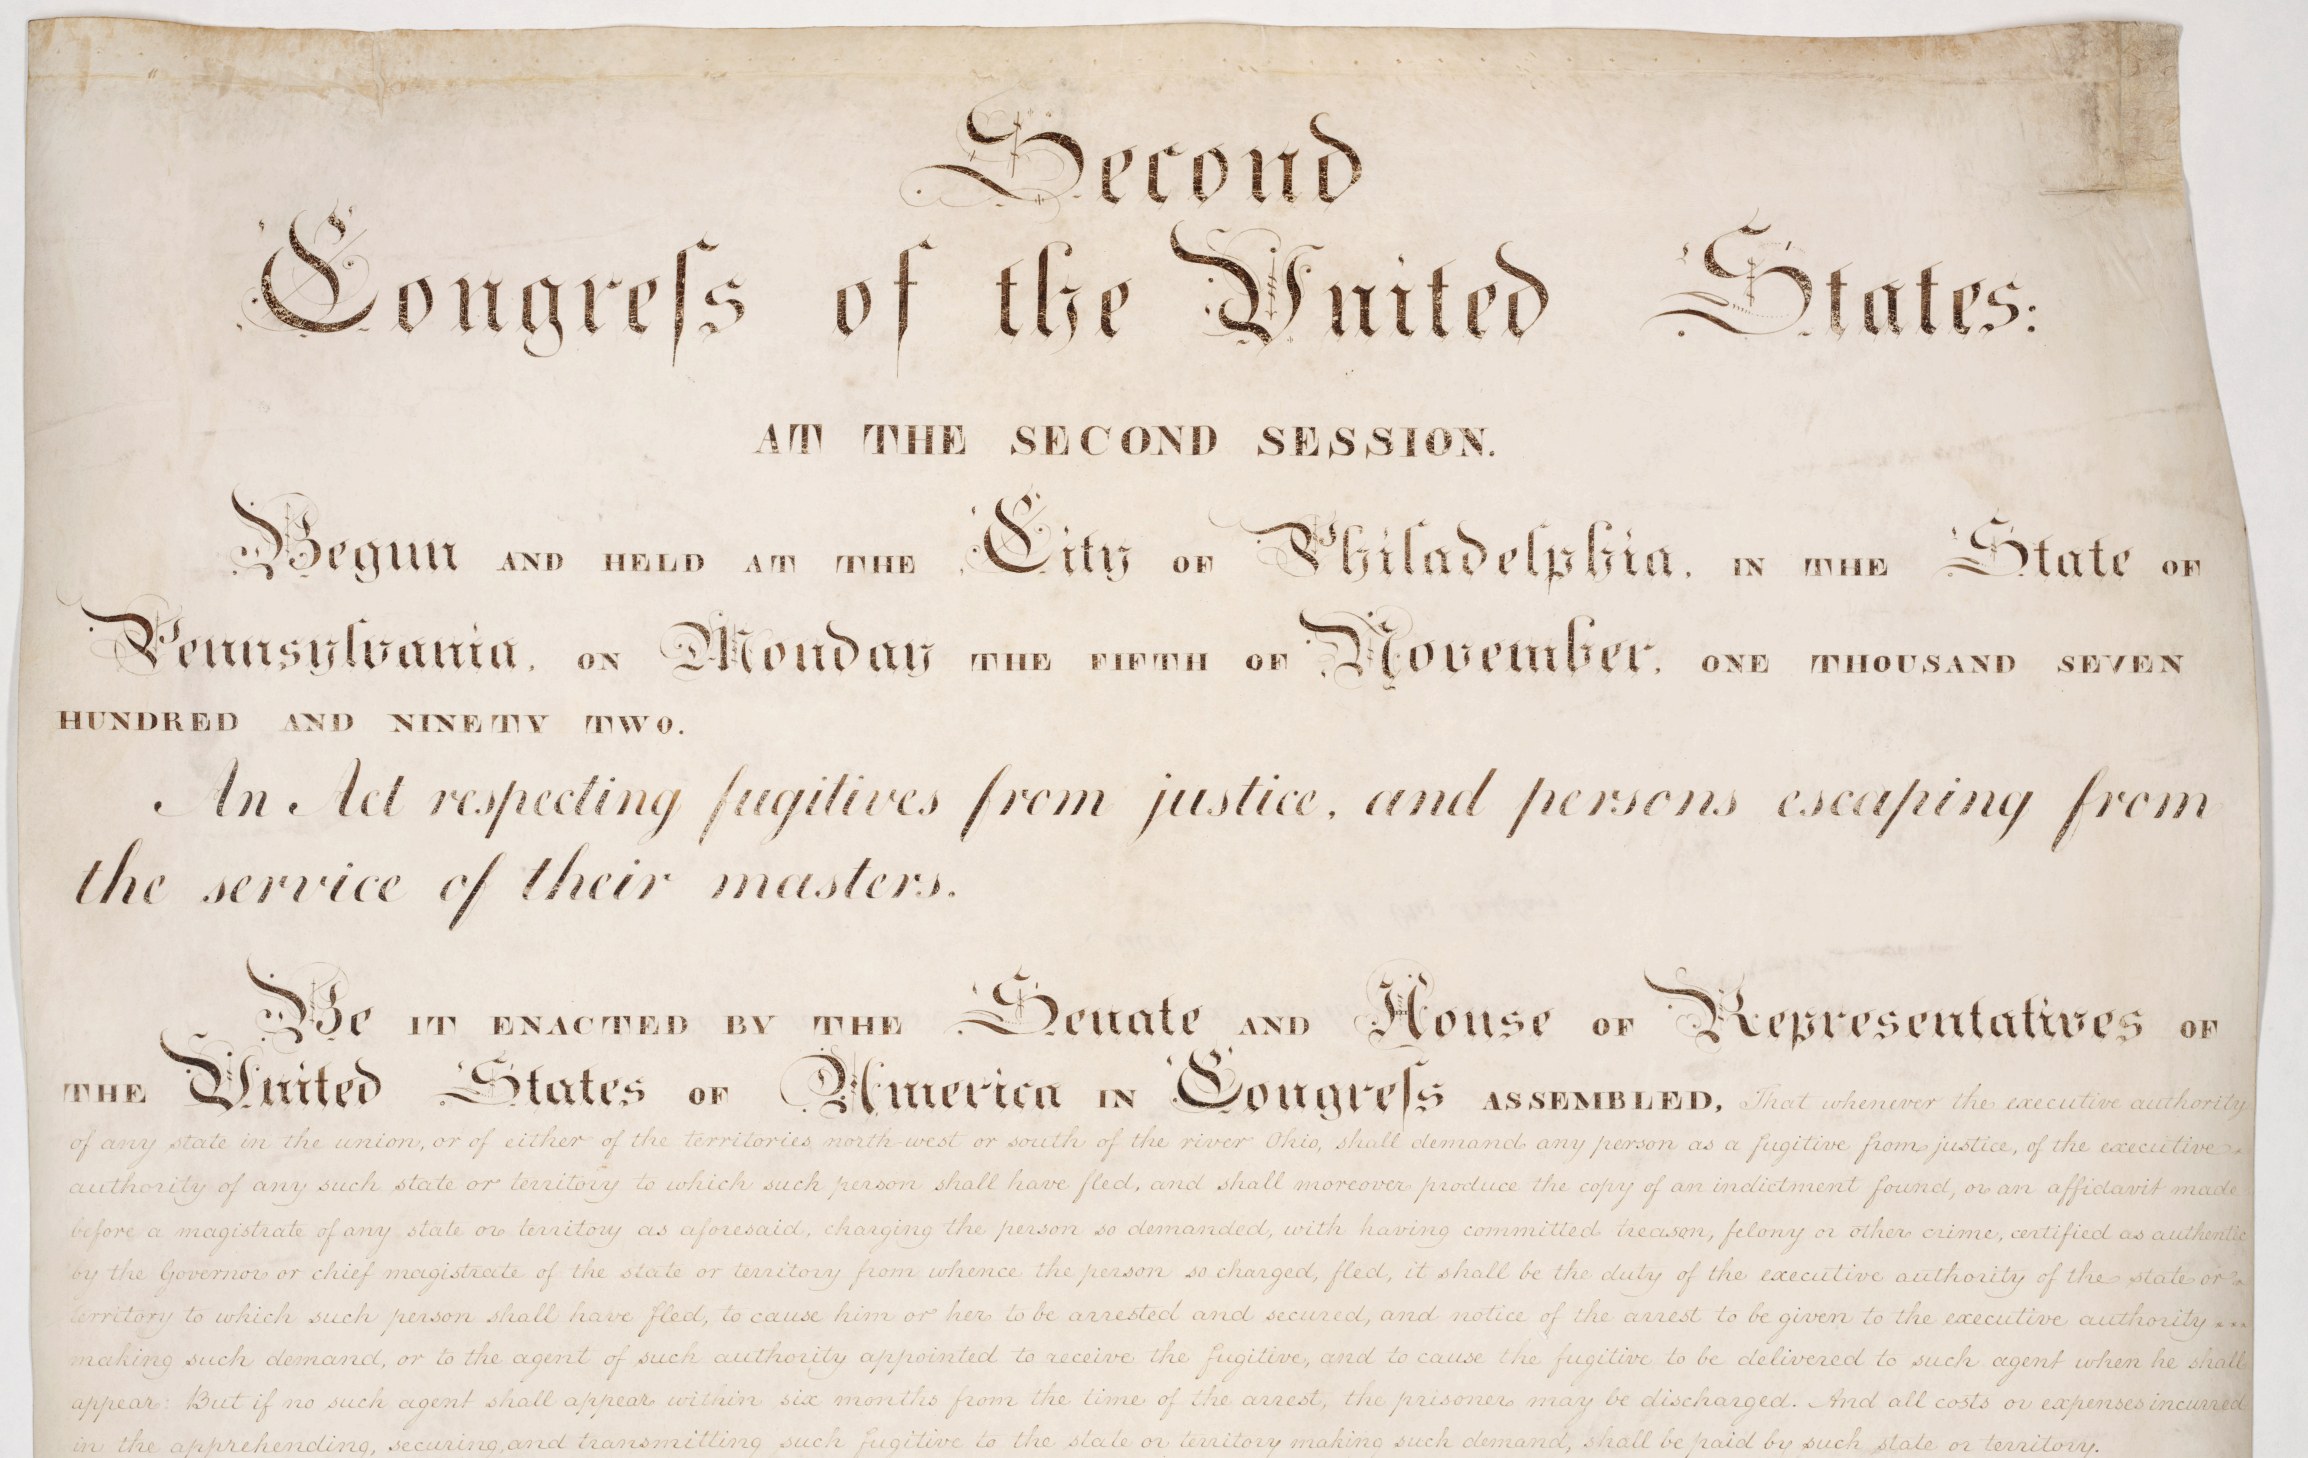 Second
Congreſs of the United States:
AT THE SECOND SESSION.
Begun AND HELD AT THE City OF Philadelphia, IN THE State OF
Pennsylvania, ON Monday THE FIFTH OF November, ONE THOUSAND SEVEN
HUNDRED AND NINETY TWO.
An Act respecting fugitives from justice, and persons escaping from
the service of their masters.
Be IT ENACTED BY THE Senate AND House OF Representatives OF
THE United States OF America IN Congreſs ASSEMBLED, That whenever the executive authority
of any state in the union, or of either of the territories north-west or south of the river Ohio, shall demand any person as a fugitive from justice, of the executive
authority of any such state or territory to which such person shall have fled, and shall moreover produce the copy of an indictment found, or an affidavit made
before a magistrate of any state or territory as aforesaid, charging the person so demanded, with having committed treason, felony or other crime, certified as authentic
by the Governor or chief magistrate of the state or territory from whence the person so charged, fled, it shall be the duty of the executive authority of the state or
territory to which such person shall have fled, to cause him or her to be arrested and secured, and notice of the arrest to be given to the executive authority
making such demand, or to the agent of such authority appointed to receive the fugitive, and to cause the fugitive to be delivered to such agent when he shall
appear: But if no such agent shall appear within six months from the time of the arrest, the prisoner may be discharged. And all costs or expenses incurred
in the apprehending, securing, and transmitting such fugitive to the state or territory making such demand, shall be paid by such state or territory.